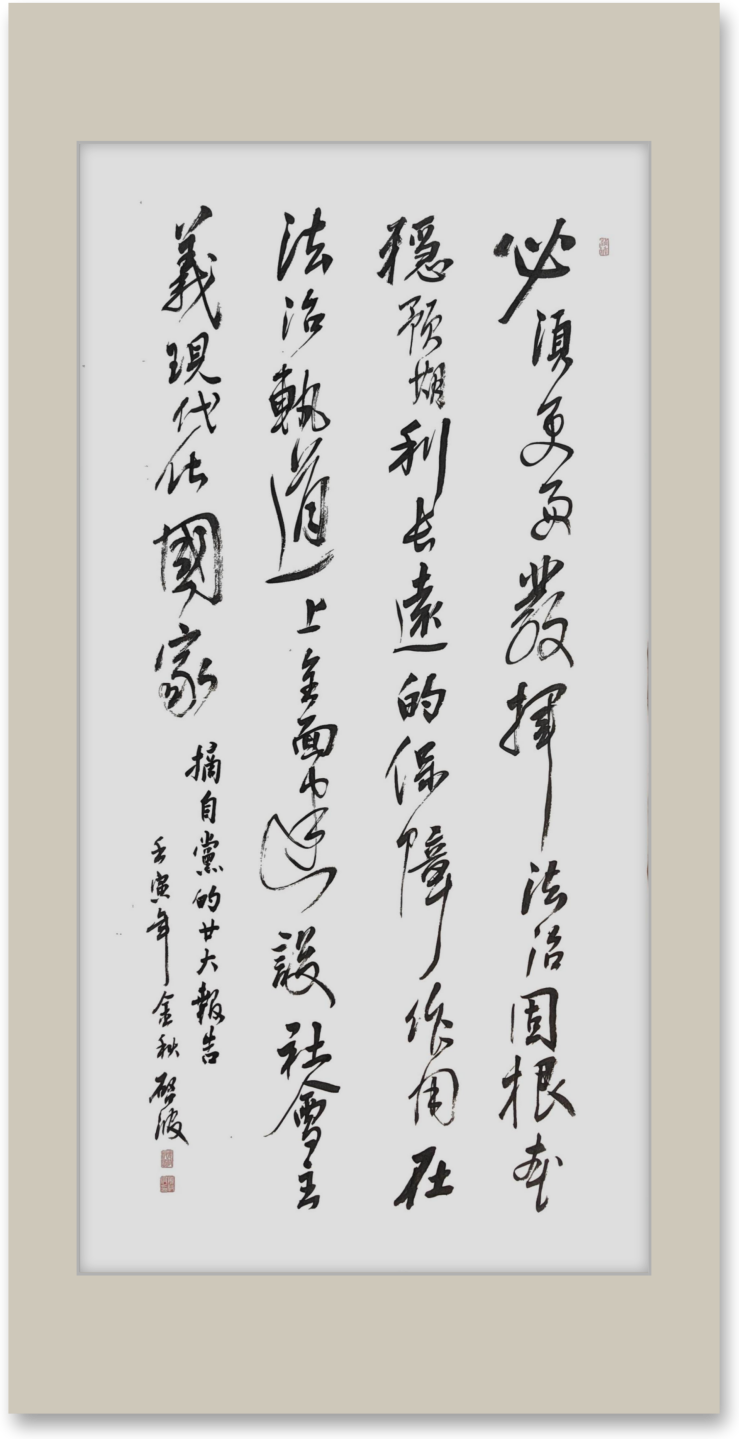 必須更好發揮法治固根本
穩預期利长遠的保障作用在
法治軌道上全面建設社會主
義現代化國家
摘自黨的廿大報告
壬寅年金秋啓波